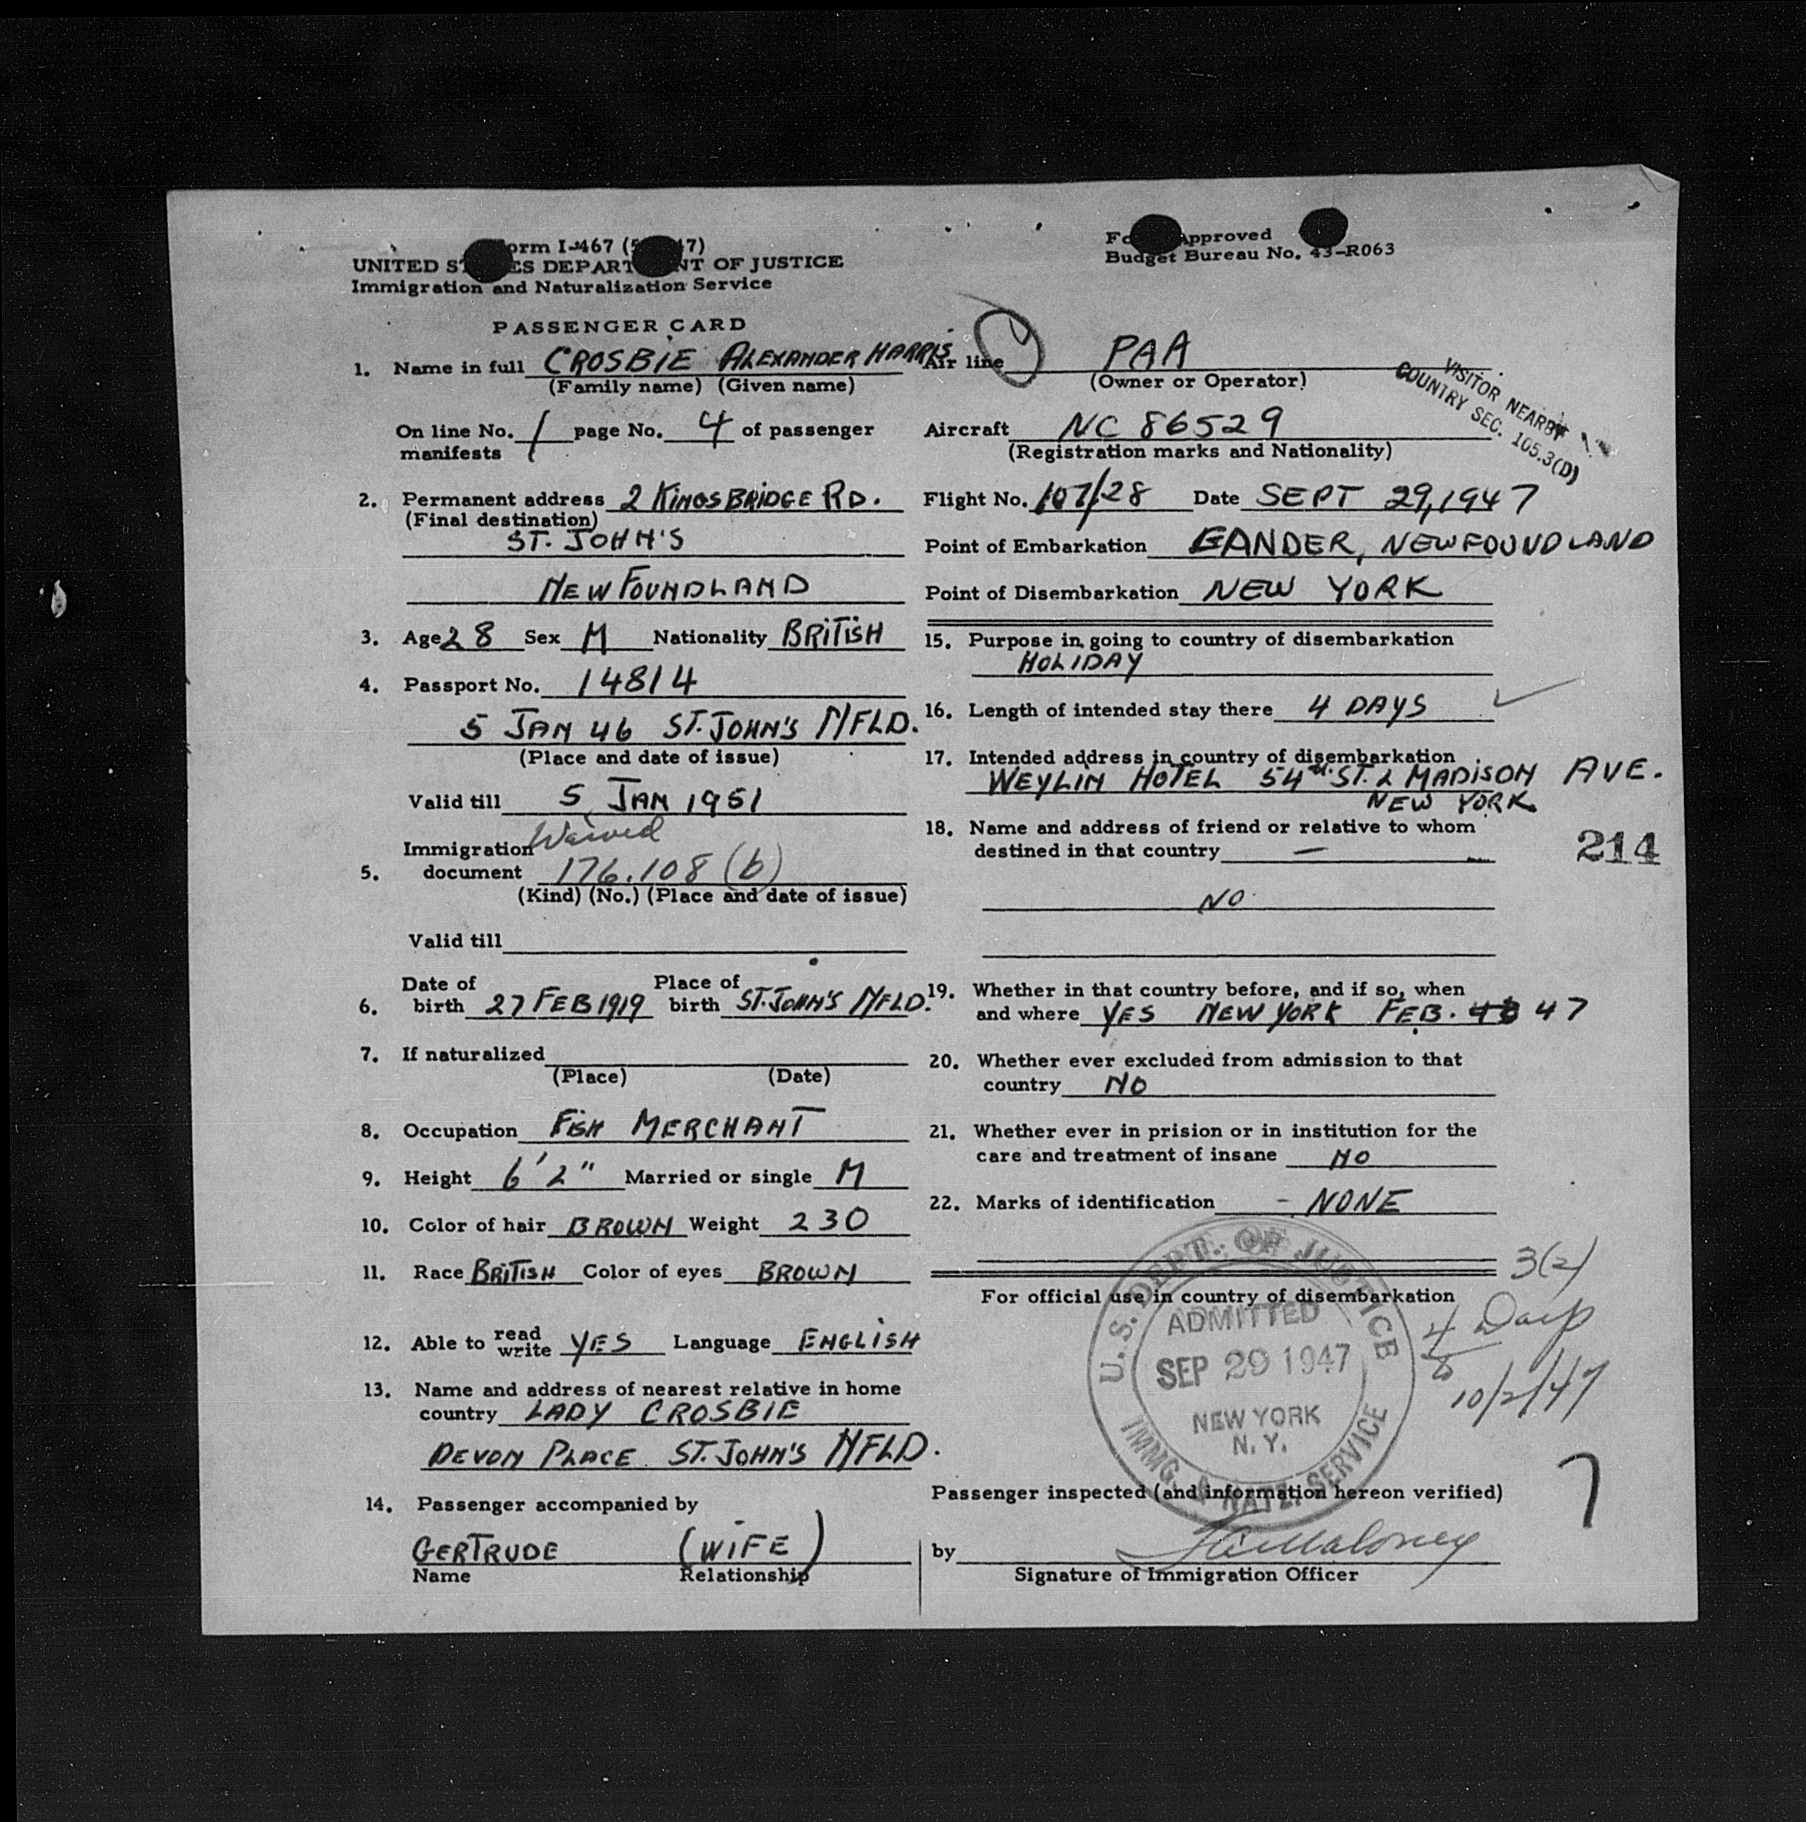 Form I-467 (5 47)
UNITED STATES DEPARTMENT OF JUSTICE
Immigration and Naturalization Service
Form Approved
Budget Bureau No. 43-R063
PASSENGER CARD
1. Name in full CROSBIE ALEXANDER HARRIS
(Family name) (Given name)
On line No. 1 page No. 4 of passenger
manifests
2. Permanent address 2 KINGSBRIDGE RD.
(Final destination)
ST. JOHN'S
NEWFOUNDLAND
3. Age 28 Sex M Nationality BRITISH
4. Passport No. 14814
5 JAN 46 ST. JOHN'S NFLD.
(Place and date of issue)
Valid till 5 JAN 1951
Waived
Immigration
5. document 176.108 (b)
(Kind) (No.) (Place and date of issue)
Valid till
Date of Place of
6. birth 27 FEB 1919 birth ST. JOHN'S NFLD.
7. If naturalized
(Place) (Date)
8. Occupation FISH MERCHANT
9. Height 6' 2" Married or single M
10. Color of hair BROWN Weight 230
11. Race BRITISH Color of eyes BROWN
12. Able to read write YES Language ENGLISH
13. Name and address of nearest relative in home
country LADY CROSBIE
DEVON PLACE ST. JOHN'S NFLD.
14. Passenger accompanied by
GERTRUDE (WIFE)
Name Relationship
Air line PAA
(Owner or Operator)
VISITOR NEARBY
COUNTRY SEC. 105.3(D)
Aircraft NC 86529
(Registration marks and Nationality)
Flight No. 107/28 Date SEPT 29, 1947
Point of Embarkation GANDER, NEWFOUNDLAND
Point of Disembarkation NEW YORK
15. Purpose in going to country of disembarkation
HOLIDAY
16. Length of intended stay there 4 DAYS
17. Intended address in country of disembarkation
WEYLIN HOTEL 54TH ST. & MADISON AVE.
NEW YORK
18. Name and address of friend or relative to whom
destined in that country —
214
NO
19. Whether in that country before, and if so, when
and where YES NEW YORK FEB. 47
20. Whether ever excluded from admission to that
country NO
21. Whether ever in prision or in institution for the
care and treatment of insane NO
22. Marks of identification - NONE
3(2)
For official use in country of disembarkation
4 Days
10/2/47
U.S. DEPT. OF JUSTICE
ADMITTED
SEP 29 1947
NEW YORK
N. Y.
IMMG. & NATZ. SERVICE
7
Passenger inspected (and information hereon verified)
by Maloney
Signature of Immigration Officer